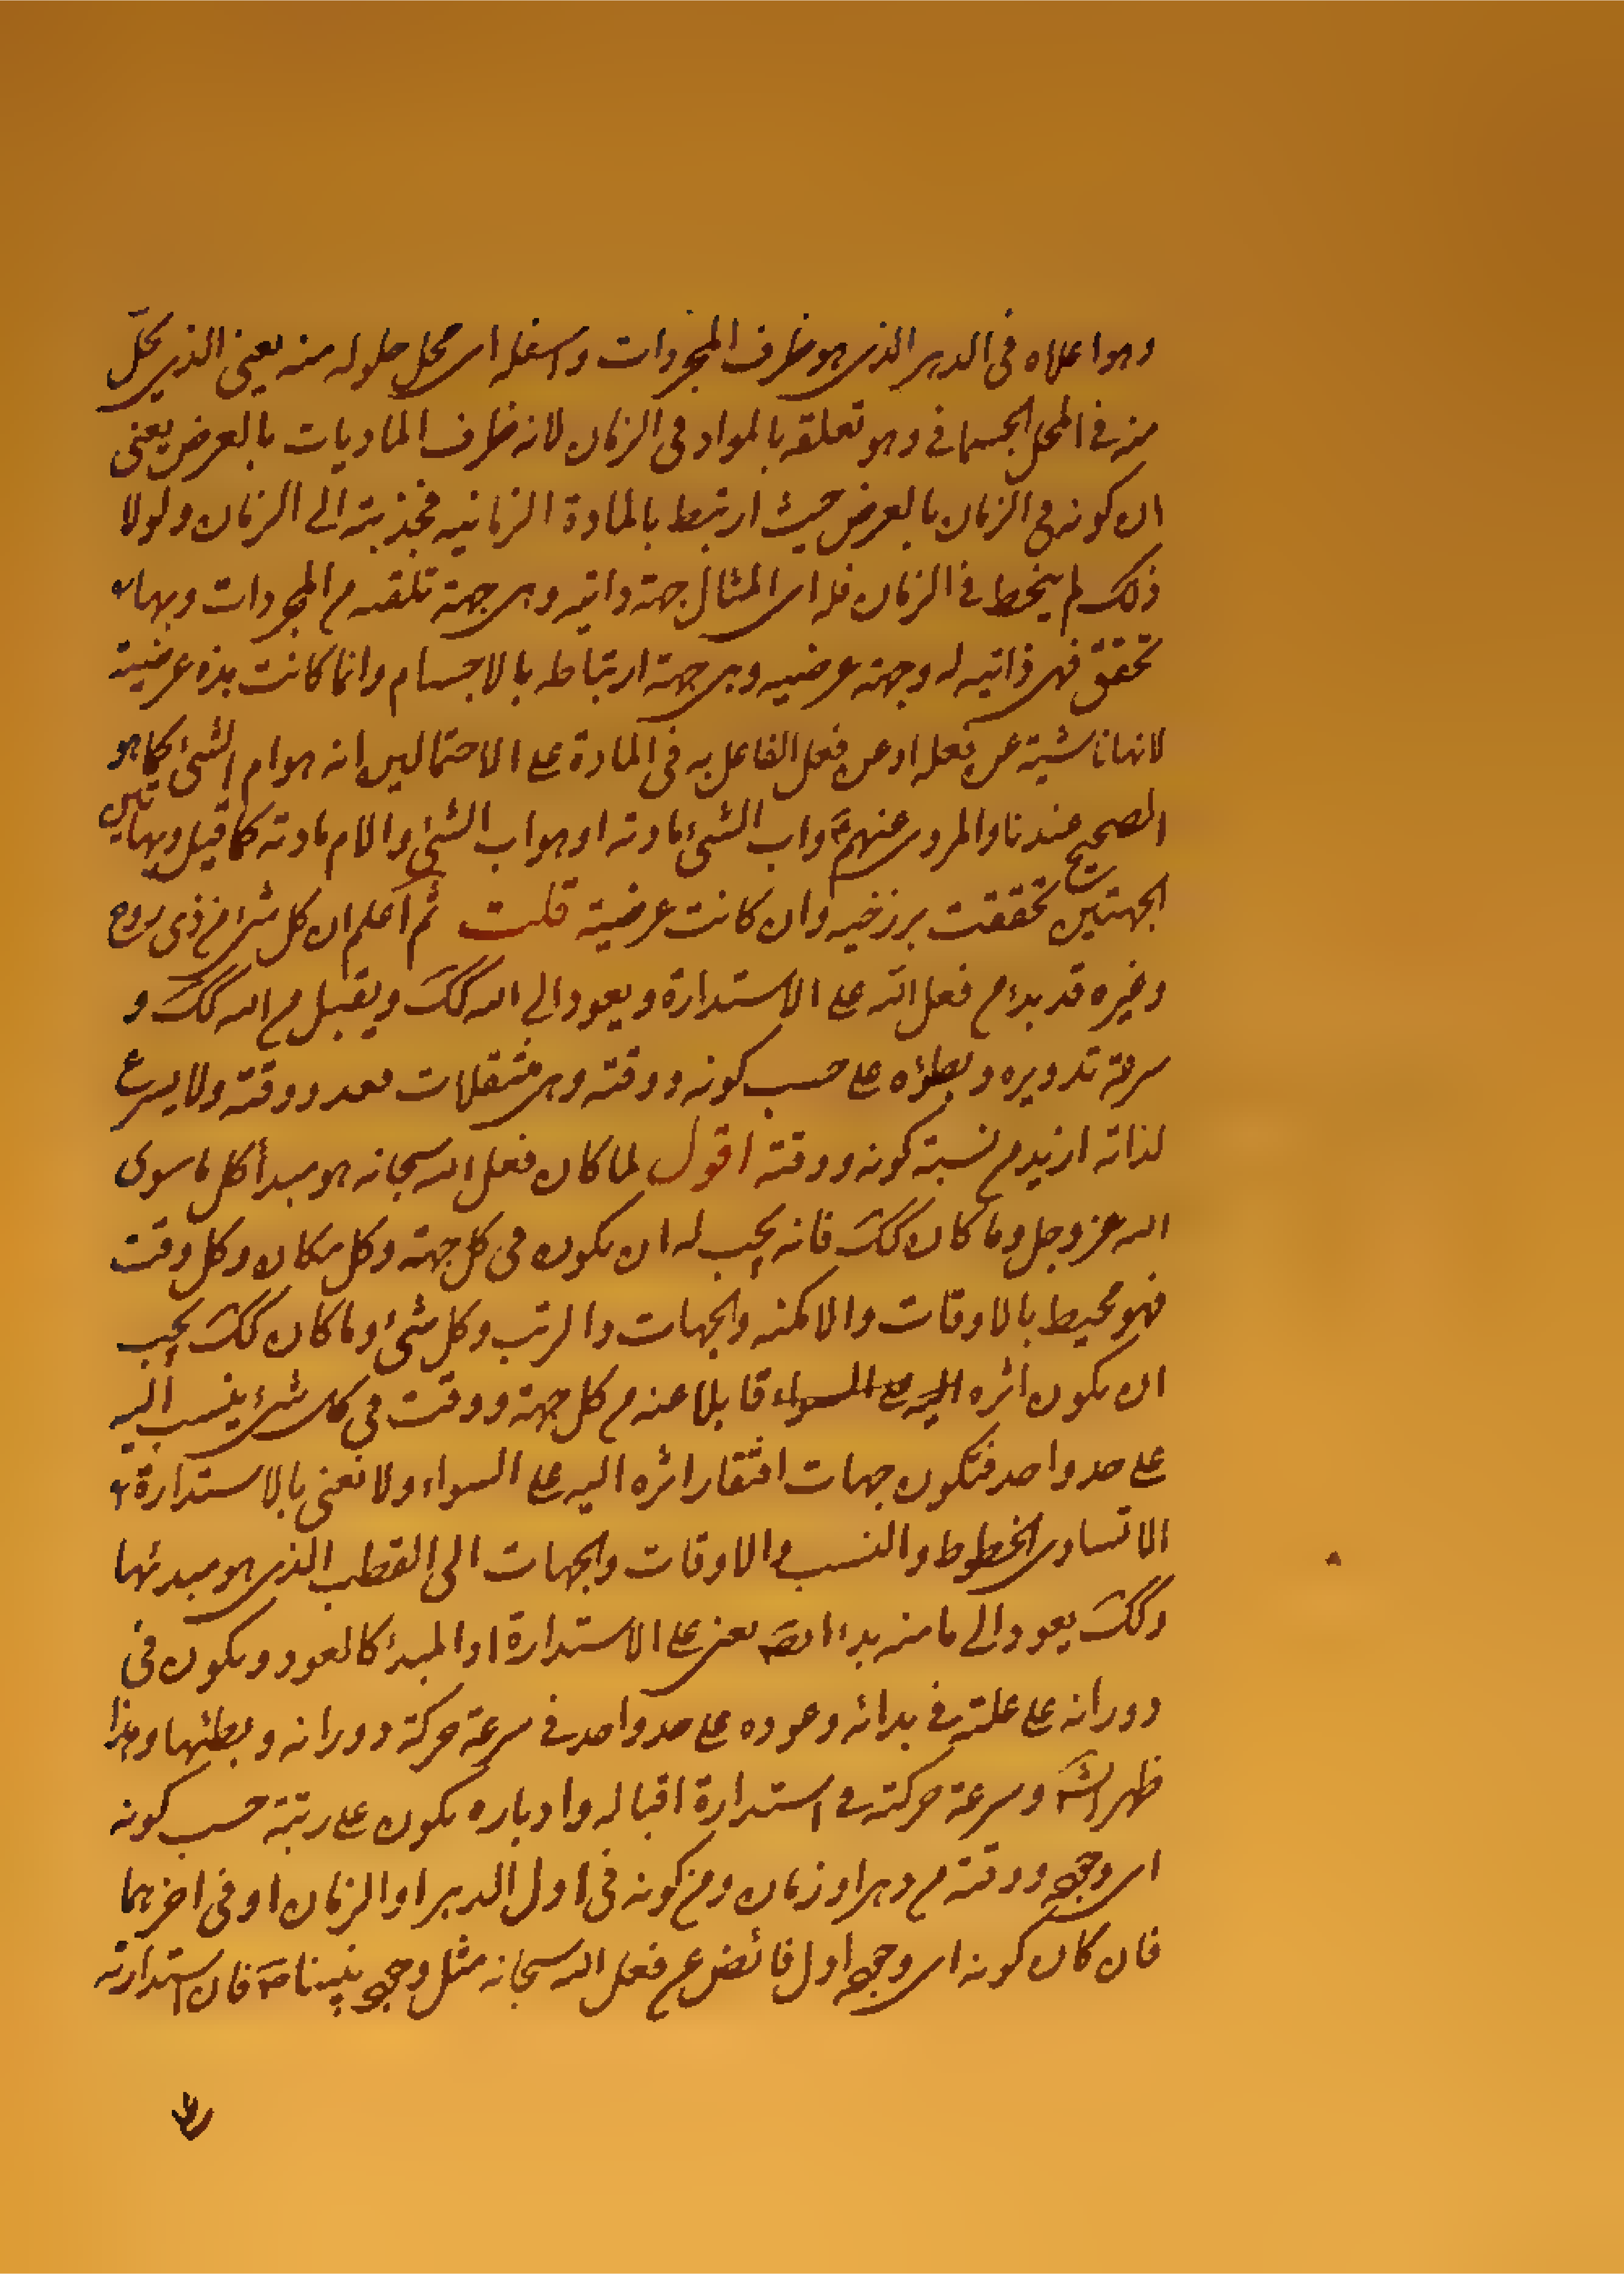 وهو اعلاه فى الدهر الذى هو ظرف المجردات واسفله اى محل حلوله منه يعنى الذى يحلّ
منه فى المحل الجسمانى وهو تعلقه بالمواد فى الزمان لانه ظرف الماديات بالعرض يعنى
ان كونه فى الزمان بالعرض حيث ارتبط بالمادة الزمانيه فجذبته الى الزمان ولولا
ذلك لم ينحط فى الزمان فله اى المثال جهة ذاتيه وهى جهة تلقيه من المجردات وبها
تحقق فهى ذاتيه له وجهة عرضيه وهى جهة ارتباطه بالاجسام وانما كانت هذه عرضية
لانها ناشئة عن فعله او عن فعل الفاعل به فى المادة على الاحتمالين انه هو ام الشئ كما هو
الصحيح عندنا والمروى عنهم واب الشئ مادته او هو اب الشئ والام مادته كما قيل وبهاتين
الجهتين تحققت برزخيه وان كانت عرضية قلت ثم اعلم ان كل شئ من ذى روح
وغيره قد بدء من فعل الله على الاستدارة ويعود الى الله كك ويقبل من الله كك و
سرعة تدويره وبطؤه على حسب كونه ووقته وهى مثقلات ووقته ولا يسرع
لذاته ازيد من نسبة كونه ووقته اقول لما كان فعل الله سبحانه هو مبدأ كل ما سوى
الله عز وجل وما كان كك فانه يجب له ان يكون فى كل جهة وكل مكان وكل وقت
فهو محيط بالاوقات والامكنه والجهات والرتب وكل شئ وما كان كك يجب
ان يكون اثره اليه على السواء قابلا عنه من كل جهة ووقت فى كل شئ ينسب اليه
على حد واحد فتكون جهات افتقار اثره اليه على السواء ولا نعنى بالاستدارة
الا تساوى الخطوط والنسب والاوقات والجهات الى القطب الذى هو مبدئها
وكك يعود الى ما منه بدء يعنى على الاستدارة اذ المبدء كالعود ويكون فى
دورانه على علته فى بدائه وعوده على حد واحد فى سرعة حركة دورانه وبطئها وهذا
ظهر وسرعة حركته فى استدارة اقباله وادباره يكون على رتبة حسب كونه
اى وجوده ووقته من دهر او زمان ومن كونه فى اول الدهر او الزمان او فى اخرهما
فان كان كونه اى وجوده اول فائض عن فعل الله سبحانه مثل وجود نبينا ص فان استدارته